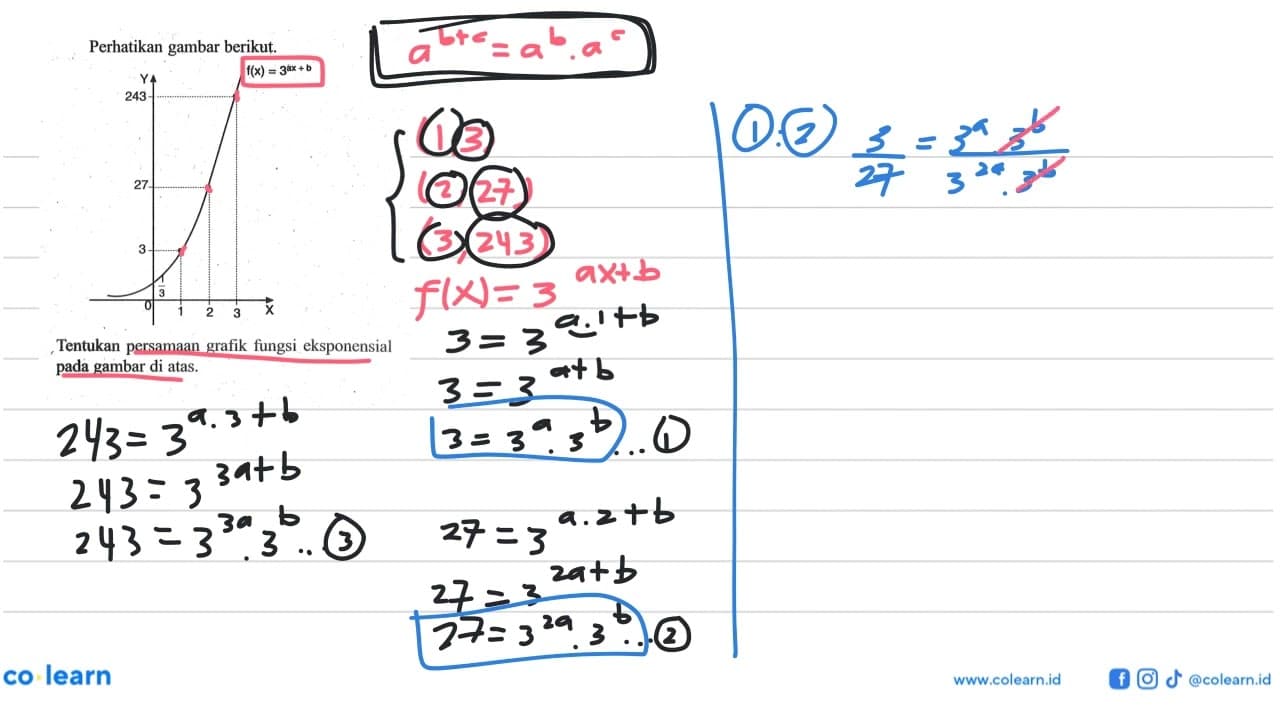 Perhatikan gambar berikut.
f(x) = 3^{ax + b}
Y
243
27
3
1/3
0 1 2 3 X
Tentukan persamaan grafik fungsi eksponensial
pada gambar di atas.
243 = 3^{a.3+b}
243 = 3^{3a+b}
243 = 3^{3a} . 3^b .. ③
a^{b+c} = a^b . a^c
(1,3)
(2,27)
(3,243)
f(x) = 3^{ax+b}
3 = 3^{a.1+b}
3 = 3^{a+b}
3 = 3^a . 3^b ... ①
27 = 3^{a.2+b}
27 = 3^{2a+b}
27 = 3^{2a} . 3^b ... ②
① : ② 3/27 = 3^a . 3^b / 3^{2a} . 3^b
co·learn
www.colearn.id @colearn.id